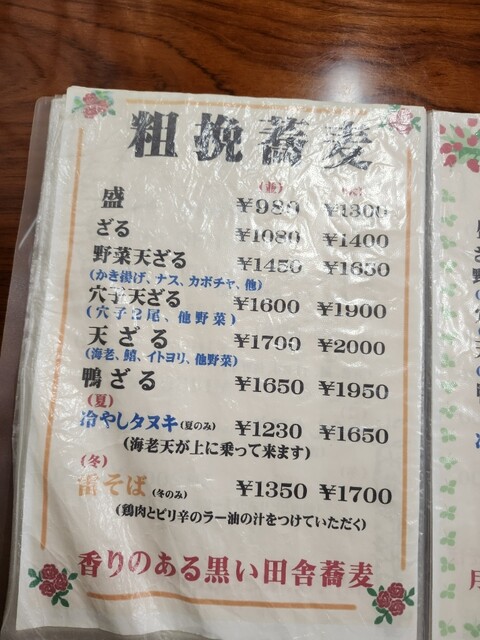 粗挽蕎麦
(並)
盛 ¥980 ¥1300
ざる ¥1080 ¥1400
野菜天ざる ¥1450 ¥1650
(かき揚げ、ナス、カボチャ、他)
穴子天ざる ¥1600 ¥1900
(穴子2尾、他野菜)
天ざる ¥1700 ¥2000
(海老、鱚、イトヨリ、他野菜)
鴨ざる ¥1650 ¥1950
(夏)
冷やしタヌキ(夏のみ) ¥1230 ¥1650
(海老天が上に乗って来ます)
(冬)
雷そば(冬のみ) ¥1350 ¥1700
(鶏肉とピリ辛のラー油の汁をつけていただく)
香りのある黒い田舎蕎麦
月